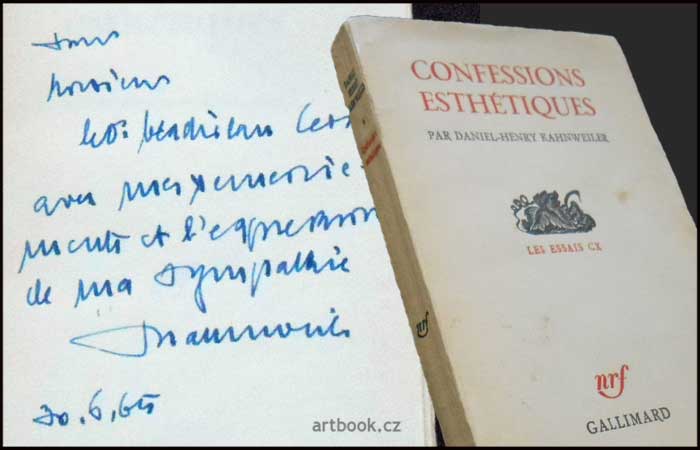 Pour
Monsieur
avec mes remercie-
ments et l'expression
de ma sympathie
DHKahnweiler
30.6.65
artbook.cz
CONFESSIONS
ESTHÉTIQUES
PAR DANIEL-HENRY KAHNWEILER
LES ESSAIS CX
nrf
GALLIMARD
nrf